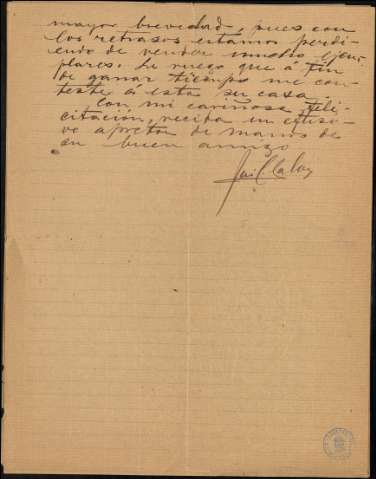 mayor brevedad, pues con
los retrasos estamos perdi-
endo de vender mucho ejem-
plares. Le ruego que á fin
de ganar tiempo me con-
teste á esta su casa
Con mi cariñosa feli-
citación, reciba un efusi-
vo apretón de manos de
su buen amigo